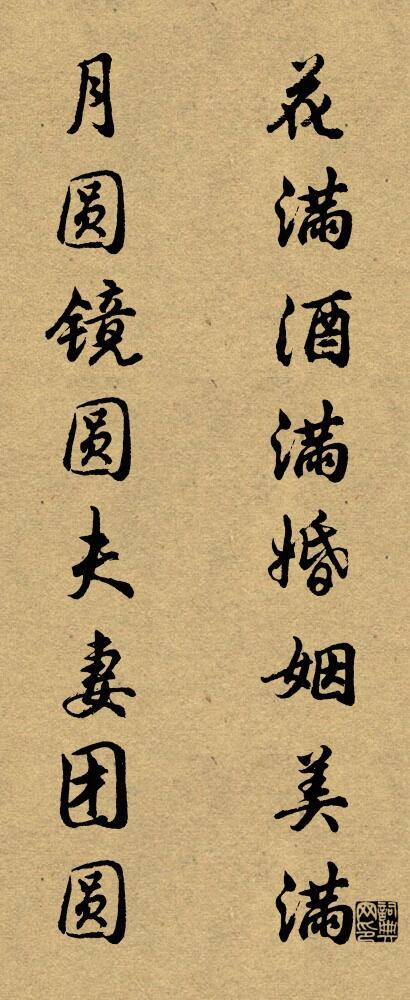 花满酒满婚姻美满
月圆镜圆夫妻团圆